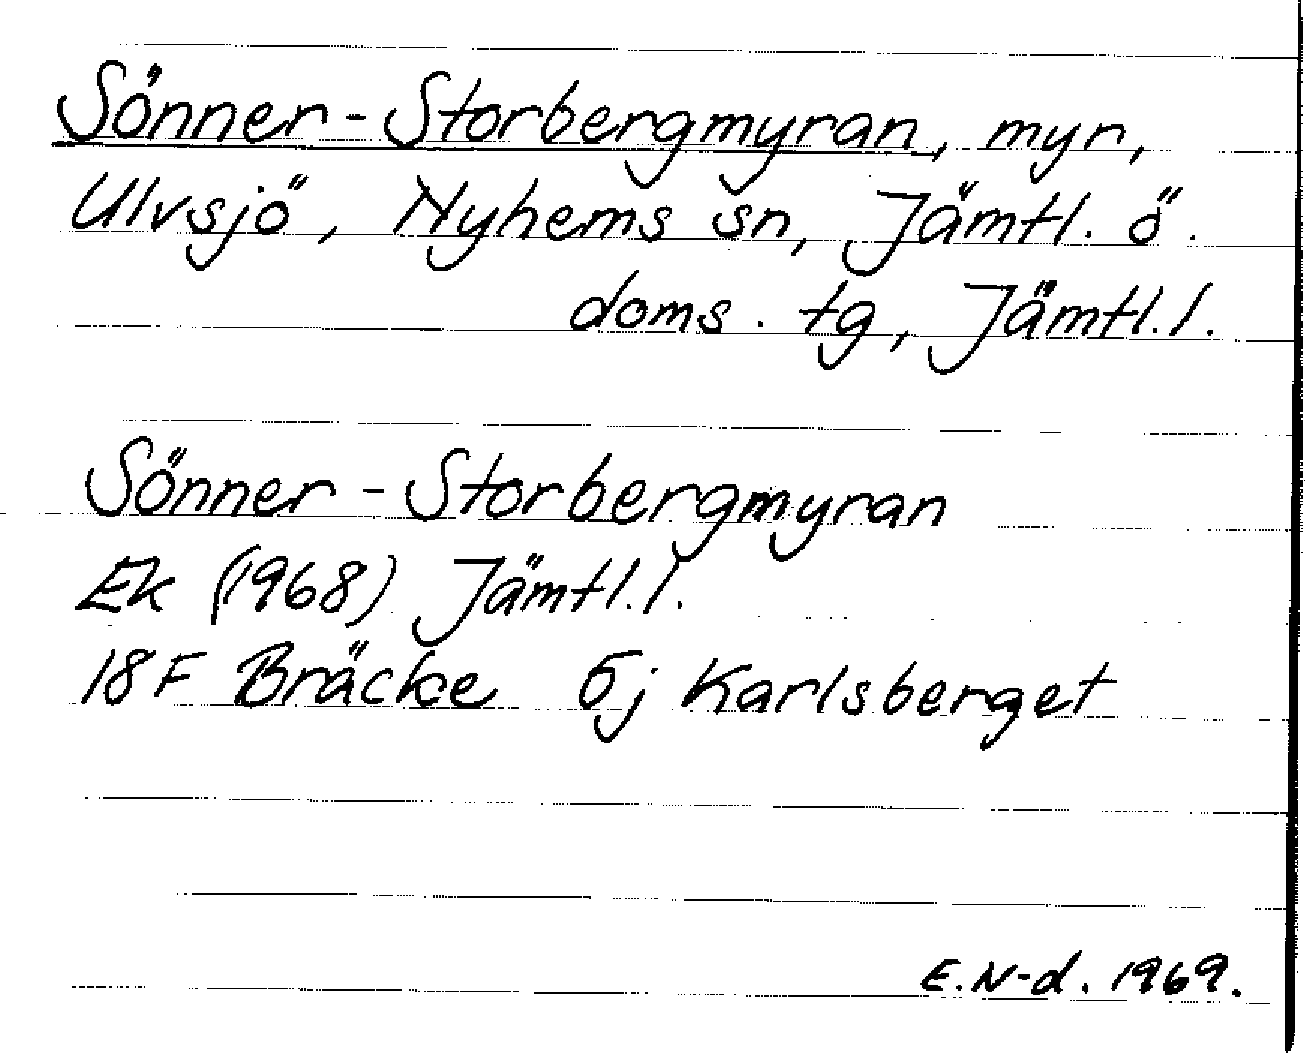 Sönner-Storbergmyran, myr,
Ulvsjö, Nyhems sn, Jämtl. ö.
doms. tg, Jämtl. l.
Sönner-Storbergmyran
Ek (1968) Jämtl. l.
18F Bräcke 6j Karlsberget
E. N-d. 1969.